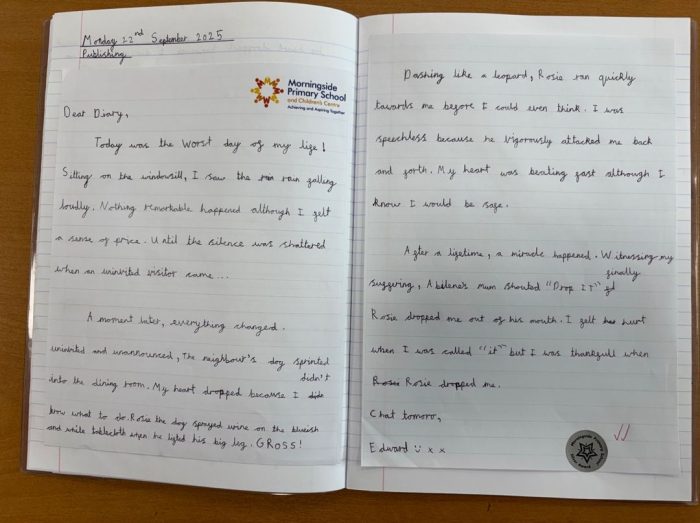 Monday 22nd September 2025
Publishing
Morningside
Primary School
and Children's Centre
Achieving and Aspiring Together
Dear Diary,
Today was the worst day of my life!
Sitting on the windowsill, I saw the rain falling
loudly. Nothing remarkable happened although I felt
a sense of price. Until the silence was shattered
when an uninvited visitor came...
A moment later, everything changed.
uninvited and unannounced, The neighbour's dog sprinted
into the dining room. My heart dropped because I didn't
know what to do. Rosie the dog sprayed urine on the blueish
and white tablecloth when he lifted his big leg. GROSS!
Dashing like a leopard, Rosie ran quickly
towards me before I could even think. I was
speechless because he vigorously attacked me back
and forth. My heart was beating fast although I
know I would be safe.
After a lifetime, a miracle happened. Witnessing my
suffering, Abilene's Mum shouted "Drop IT" finally
Rosie dropped me out of his mouth. I felt hurt
when I was called "it" but I was thankfull when
Rosie Rosie dropped me.
Chat tomoro,
Edward x x